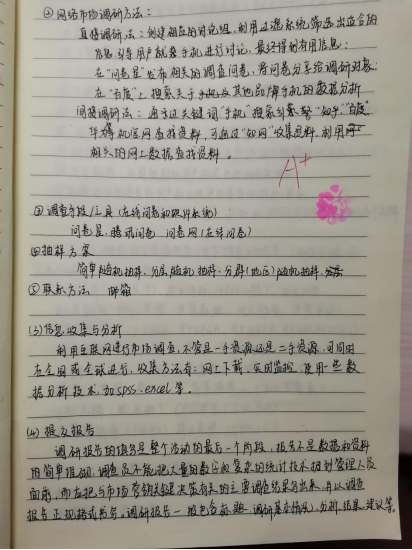 ②网络市场调研方法：
直接调研法：创建相应的讨论组，利用过滤系统筛选出适合的
信息，引导用户就某手机进行讨论，最终得到有用信息；
在"问卷星"发布相关的调查问卷，将问卷分享给调研对象；
在"百度"上搜索关于手机及其他品牌手机的数据分析
间接调研法：通过关键词"手机"搜索引擎"知乎""百度"
手机官网查找资料，可通过"知网"收集资料，利用
相关的网上数据查找资料。
A+
③调查手段/工具（在线问卷和软件系统）
问卷星、腾讯问卷 问卷网（在线问卷）
④抽样方案
简单随机抽样、分层随机抽样、分群（地区）随机抽样、
⑤联系方法 邮箱
(3)信息收集与分析
利用互联网进行市场调查，不管是一手资源还是二手资源，可同时
在全国或全球进行，收集方法有：网上下载、实时监视、使用一些数
据分析技术，如spss、excel等。
(4)提交报告
调研报告的填写是整个活动的最后一个阶段，报告不是数据和资料
的简单堆砌，调查员不能把大量的数字和复杂的统计技术扔到管理人员
面前，而应把与市场营销关键决策有关的主要调查结果写出来，并以调查
报告正规格式书写。调研报告一般包含标题、调研基本情况、分析、结果、建议等。